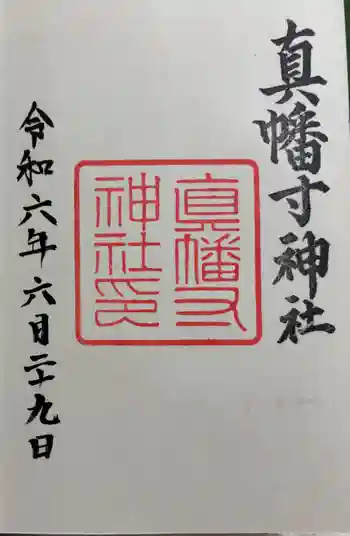 真幡寸神社
真幡寸
神社印
令和六年六月二十九日